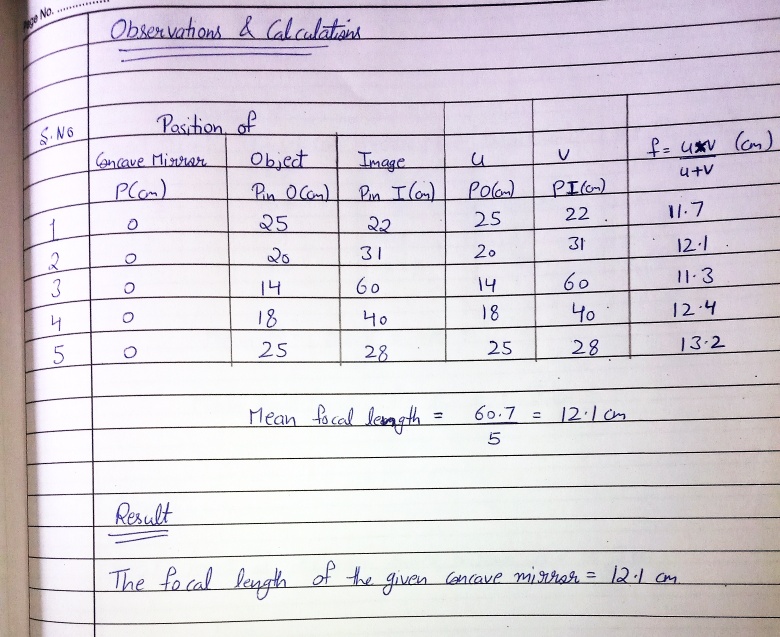 Page No. ..............
Observations & Calculations
S.No Position of
Concave Mirror Object Image u v f = u×v (cm)
u+v
P(cm) Pin O(cm) Pin I(cm) PO(cm) PI(cm)
1 0 25 22 25 22 11.7
2 0 20 31 20 31 12.1
3 0 14 60 14 60 11.3
4 0 18 40 18 40 12.4
5 0 25 28 25 28 13.2
Mean focal length = 60.7 = 12.1 cm
5
Result
The focal length of the given concave mirror = 12.1 cm